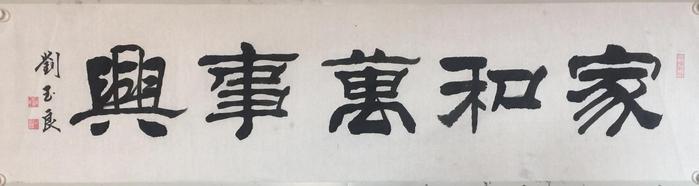 家和萬事興
劉玉良